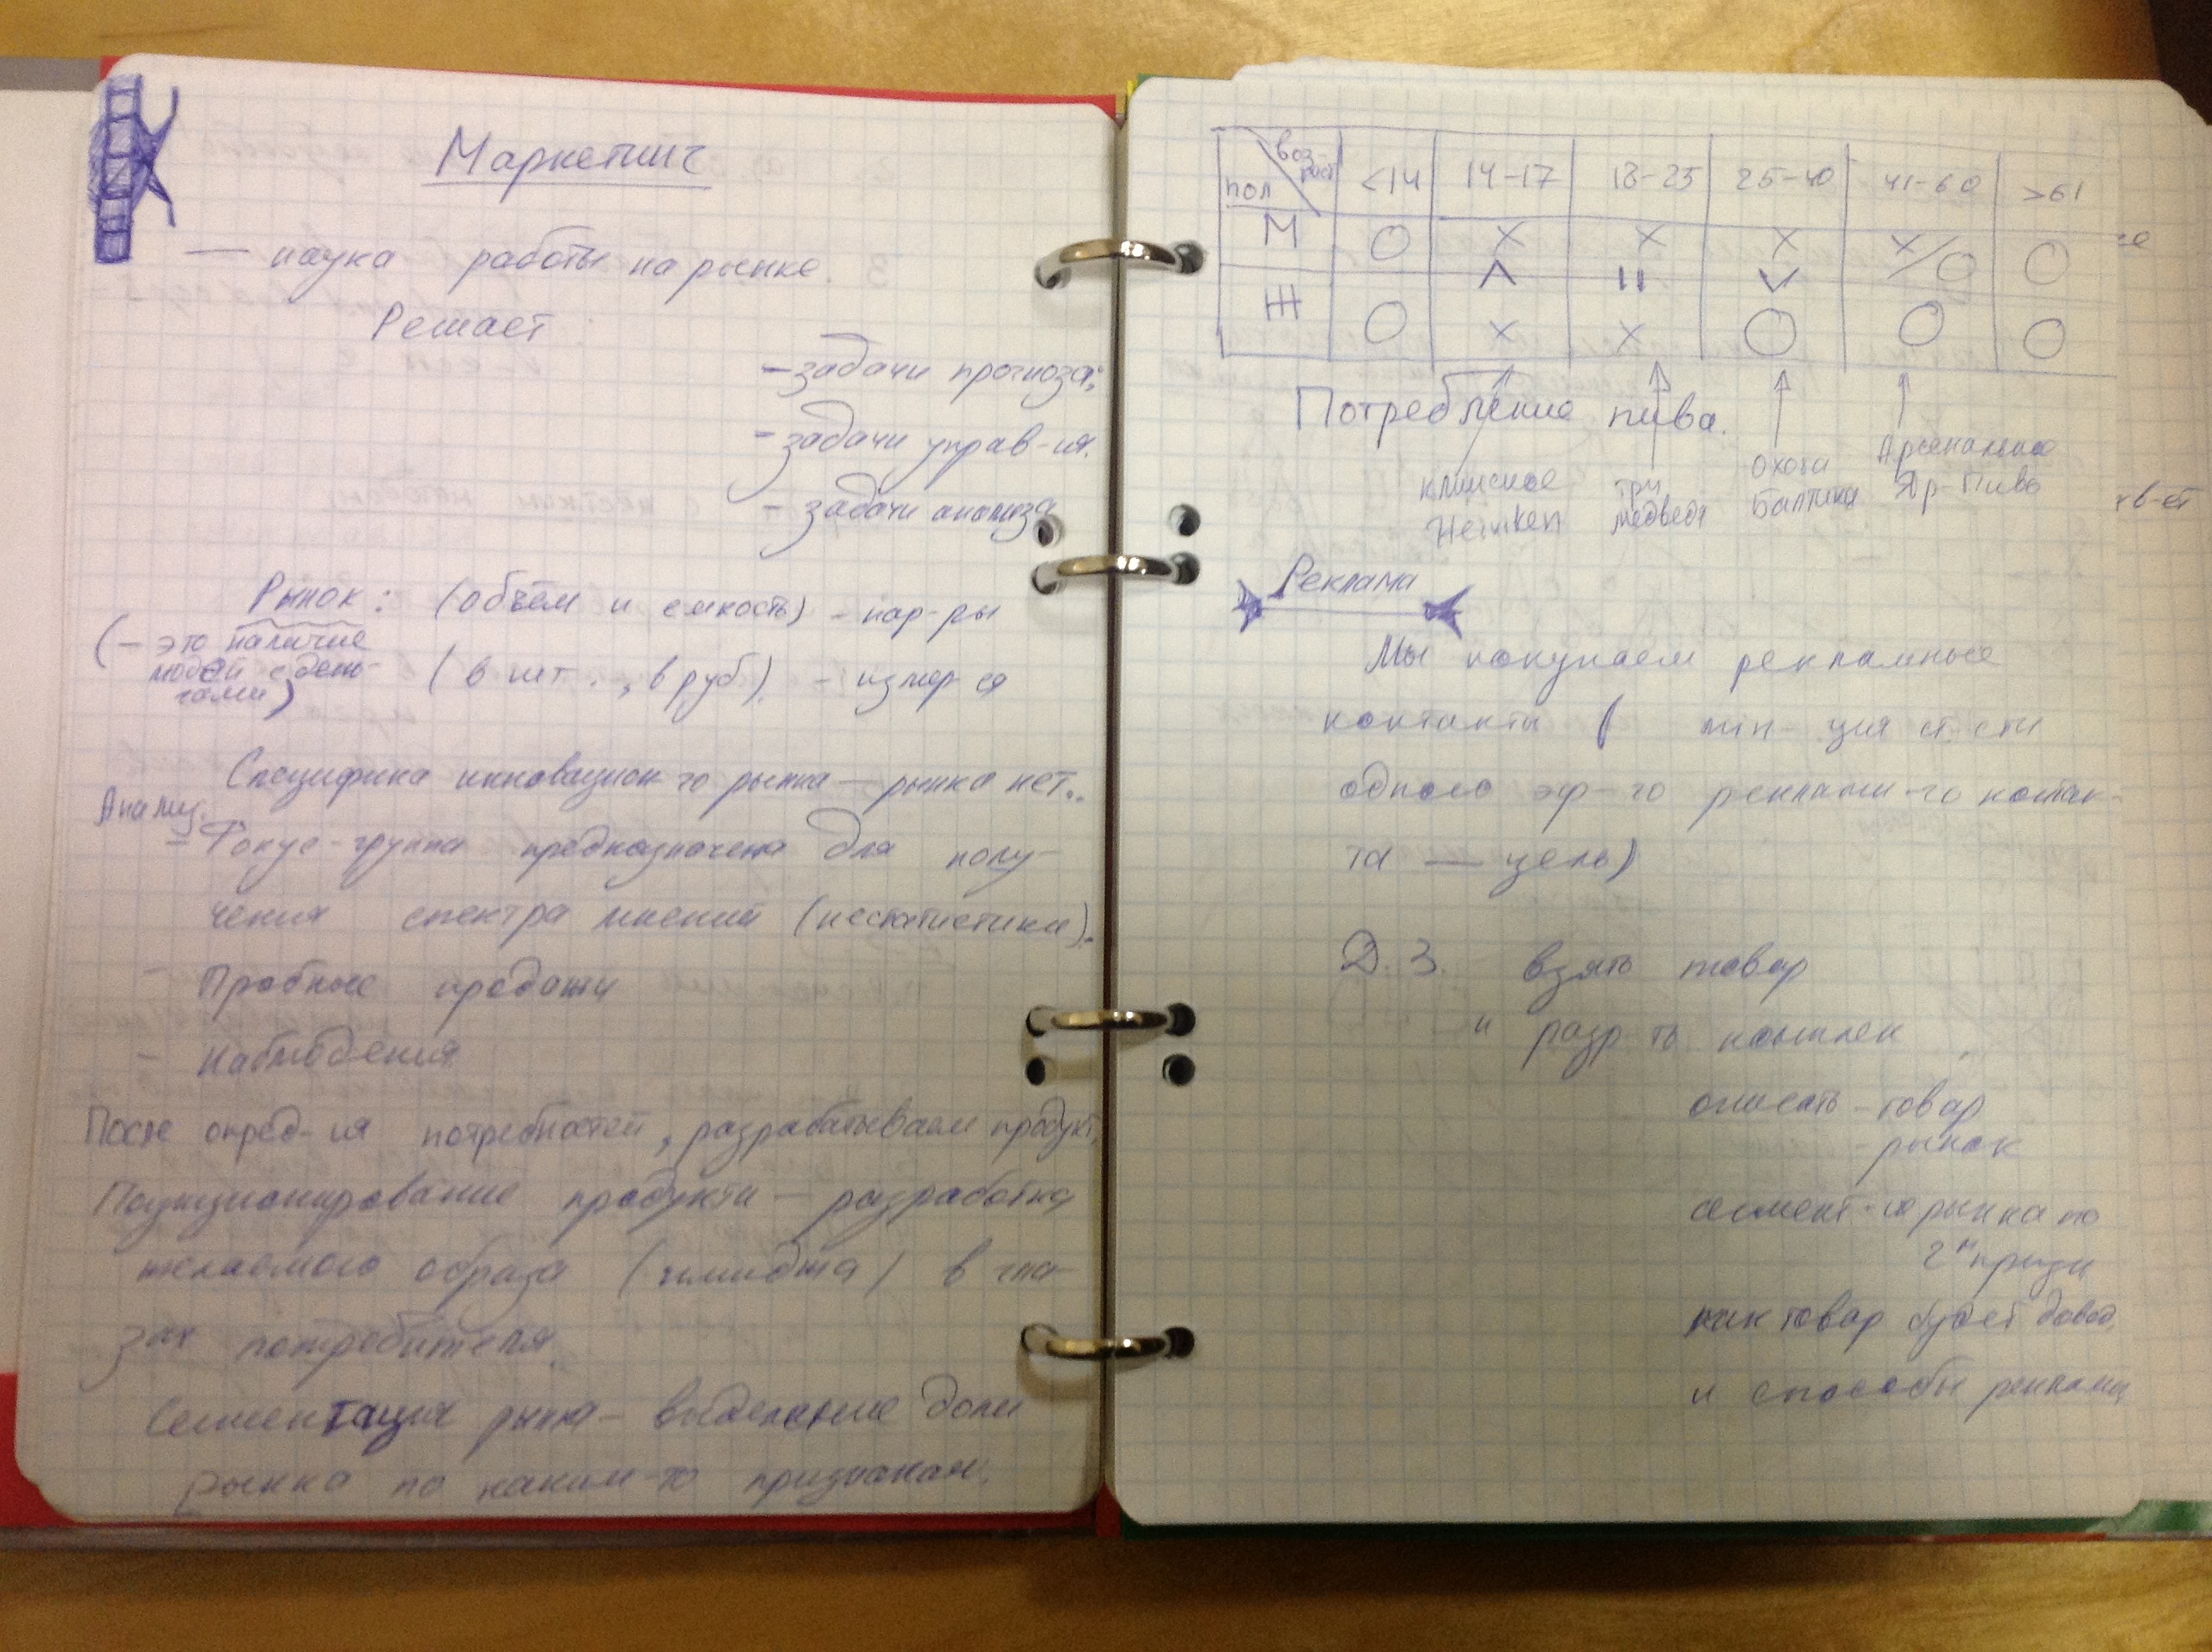 Маркетинг
— наука работы на рынке.
Решает:
- задачи прогноза;
- задачи управ-ия.
- задачи анализа
Рынок: (объём и емкость) - пар-ры
(- это наличие
людей с день-
гами)
(в шт., в руб). - измер-ся
Специфика инновацион-го рынка — рынка нет..
Анализ.
- Фокус-группа предназначена для полу-
чения спектра мнений (не статистики).
- Пробные продажи
- Наблюдения
После опред-ия потребностей, разрабатываем продукт.
Позиционирование продукта — разработка
желаемого образа (имиджа) в гла-
зах потребителя.
Сегментация рынка - выделение доли
рынка по каким-то признакам.
пол возраст <14 14-17 18-25 25-40 41-60 >61
М О X X X X/О О
Λ II V
Ж О X X О О О
Потребление пива.
Клинское Heineken
три медведя
Охота Балтика
Арсенальное Яр-Пиво
Реклама
Мы покупаем рекламные
контакты ( min-ция ст-сти
одного эф-го рекламн-го контак-
та — цель)
Д.З. взять товар
и разр-ть комплекс
описать - товар
- рынок
сегмент-ия рынка по
2м призн
как товар будет довод.
и способы рекламы